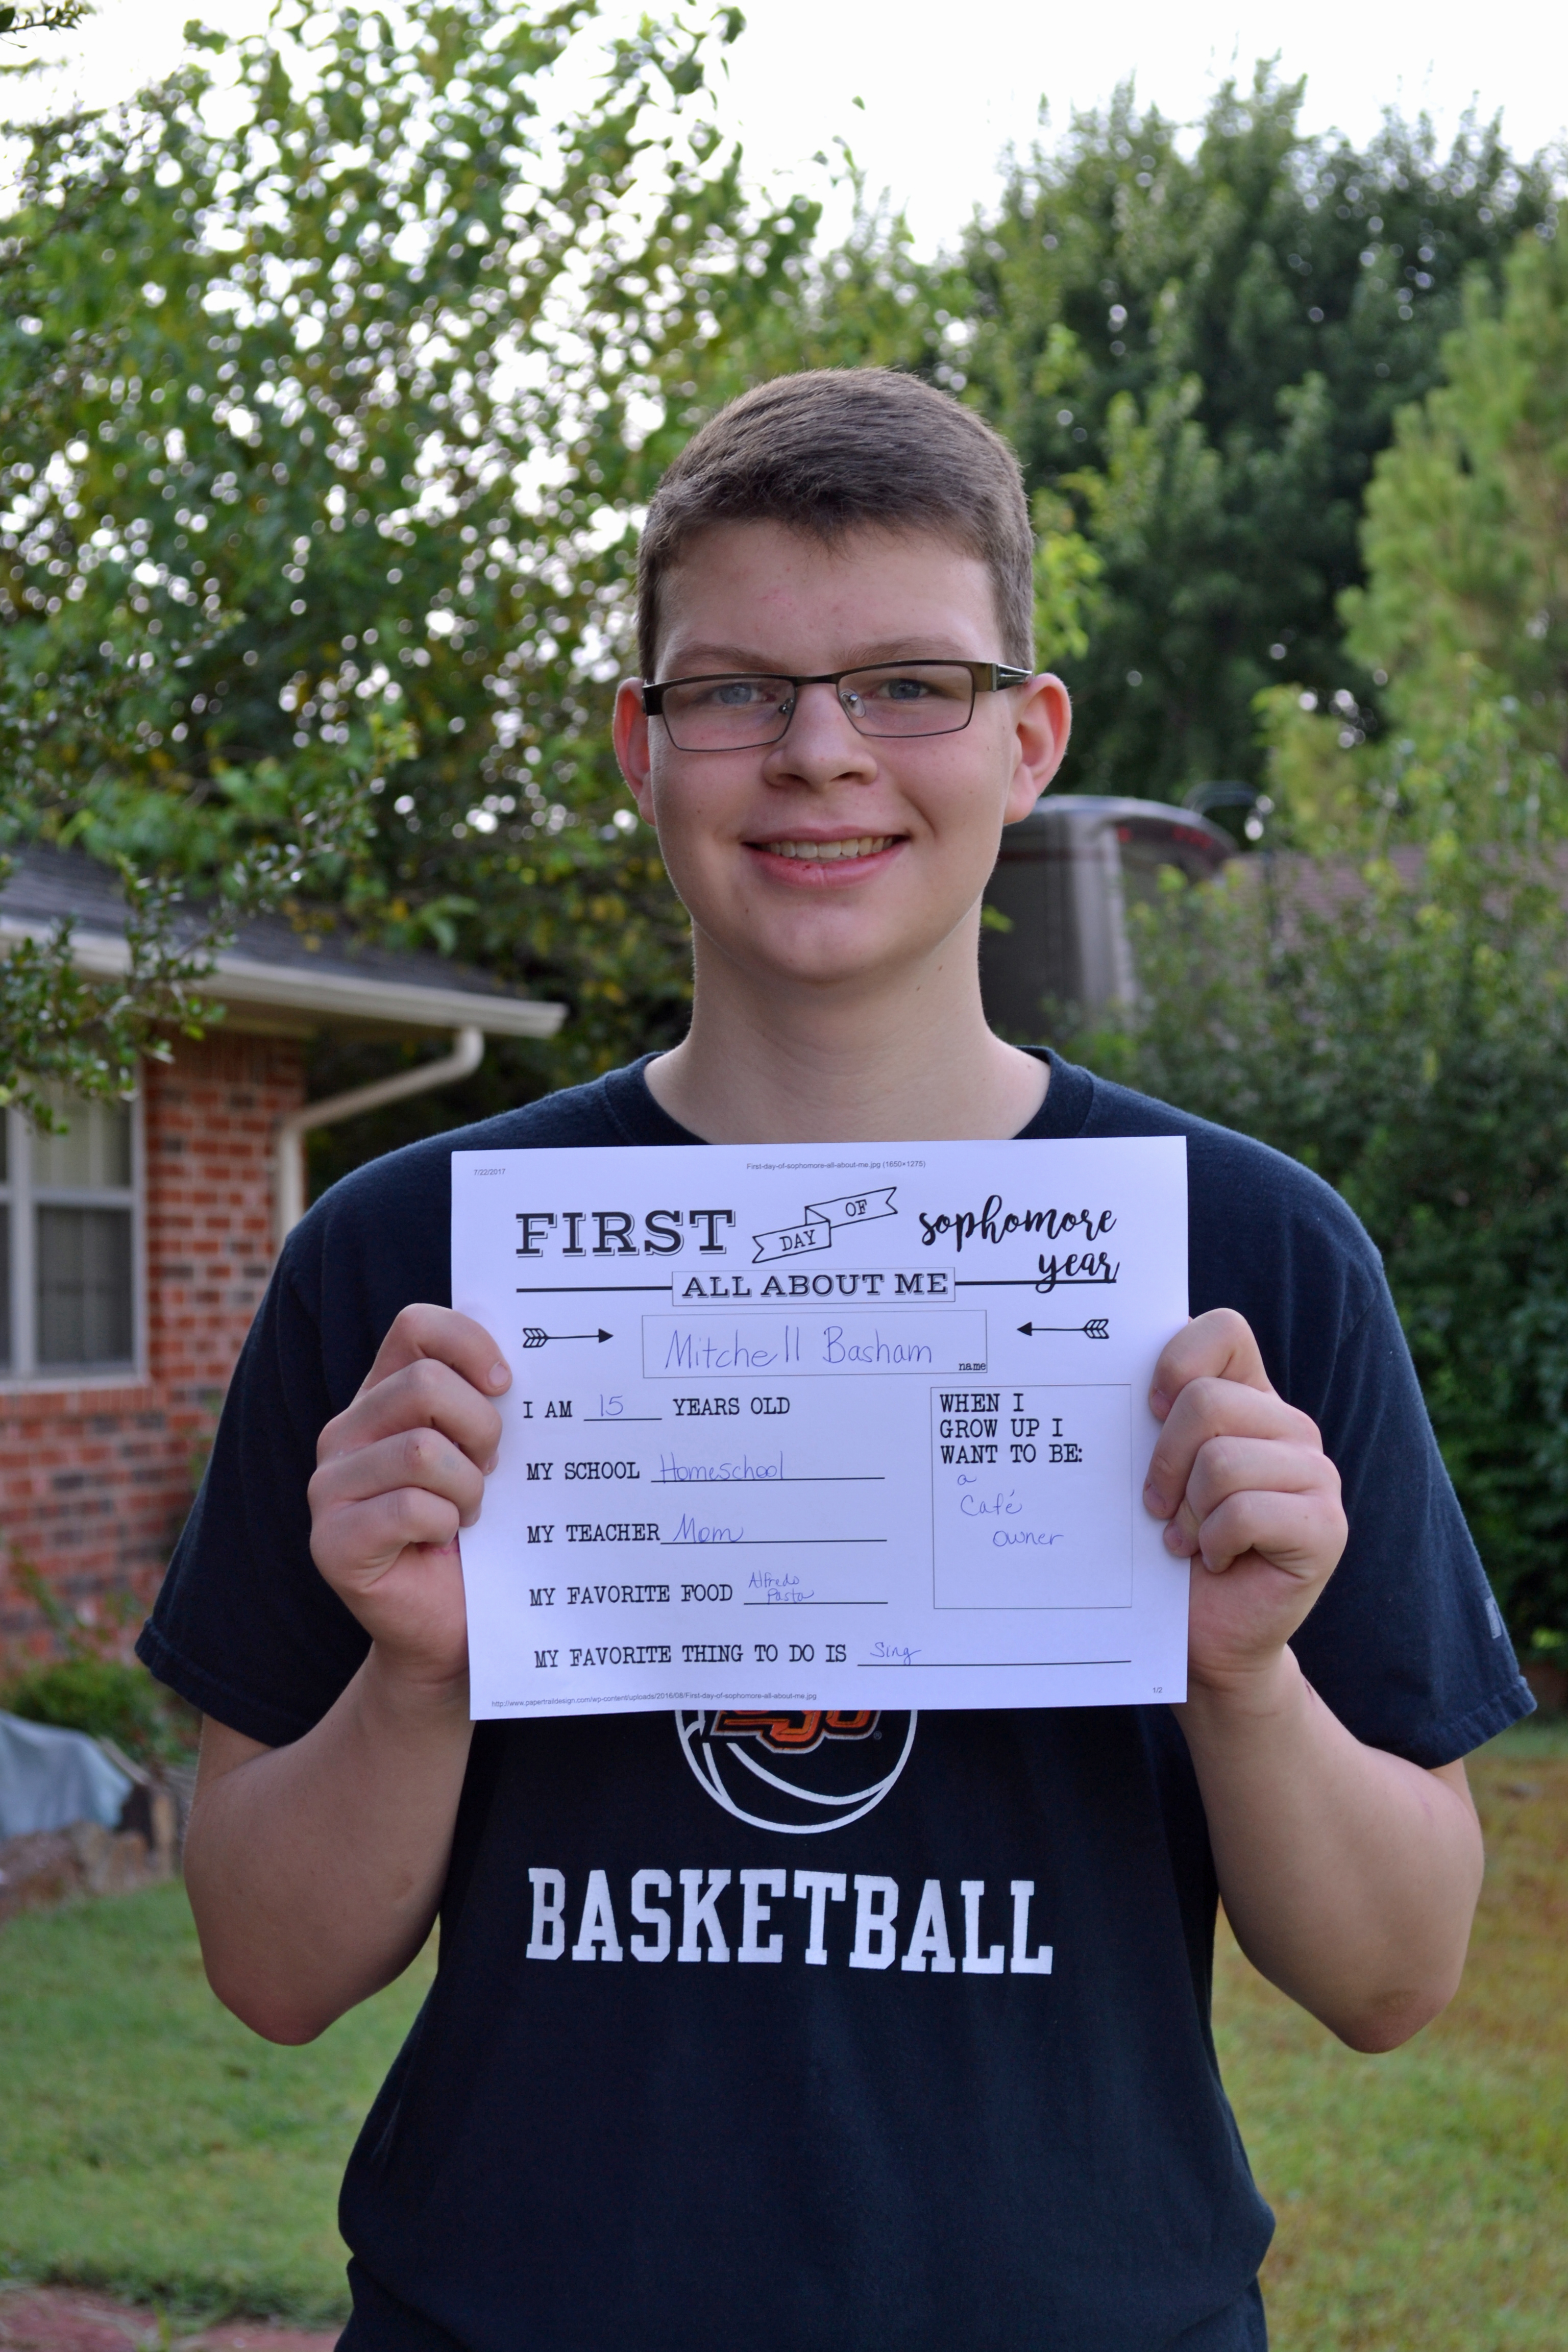 7/22/2017 First-day-of-sophomore-all-about-me.jpg (1650×1275)
FIRST DAY OF sophomore
year
ALL ABOUT ME
Mitchell Basham
name
I AM 15 YEARS OLD
MY SCHOOL Homeschool
MY TEACHER Mom
MY FAVORITE FOOD Alfredo
Pasta
WHEN I
GROW UP I
WANT TO BE:
a
Café
owner
MY FAVORITE THING TO DO IS Sing
http://www.papertraildesign.com/wp-content/uploads/2016/08/First-day-of-sophomore-all-about-me.jpg 1/2
BASKETBALL